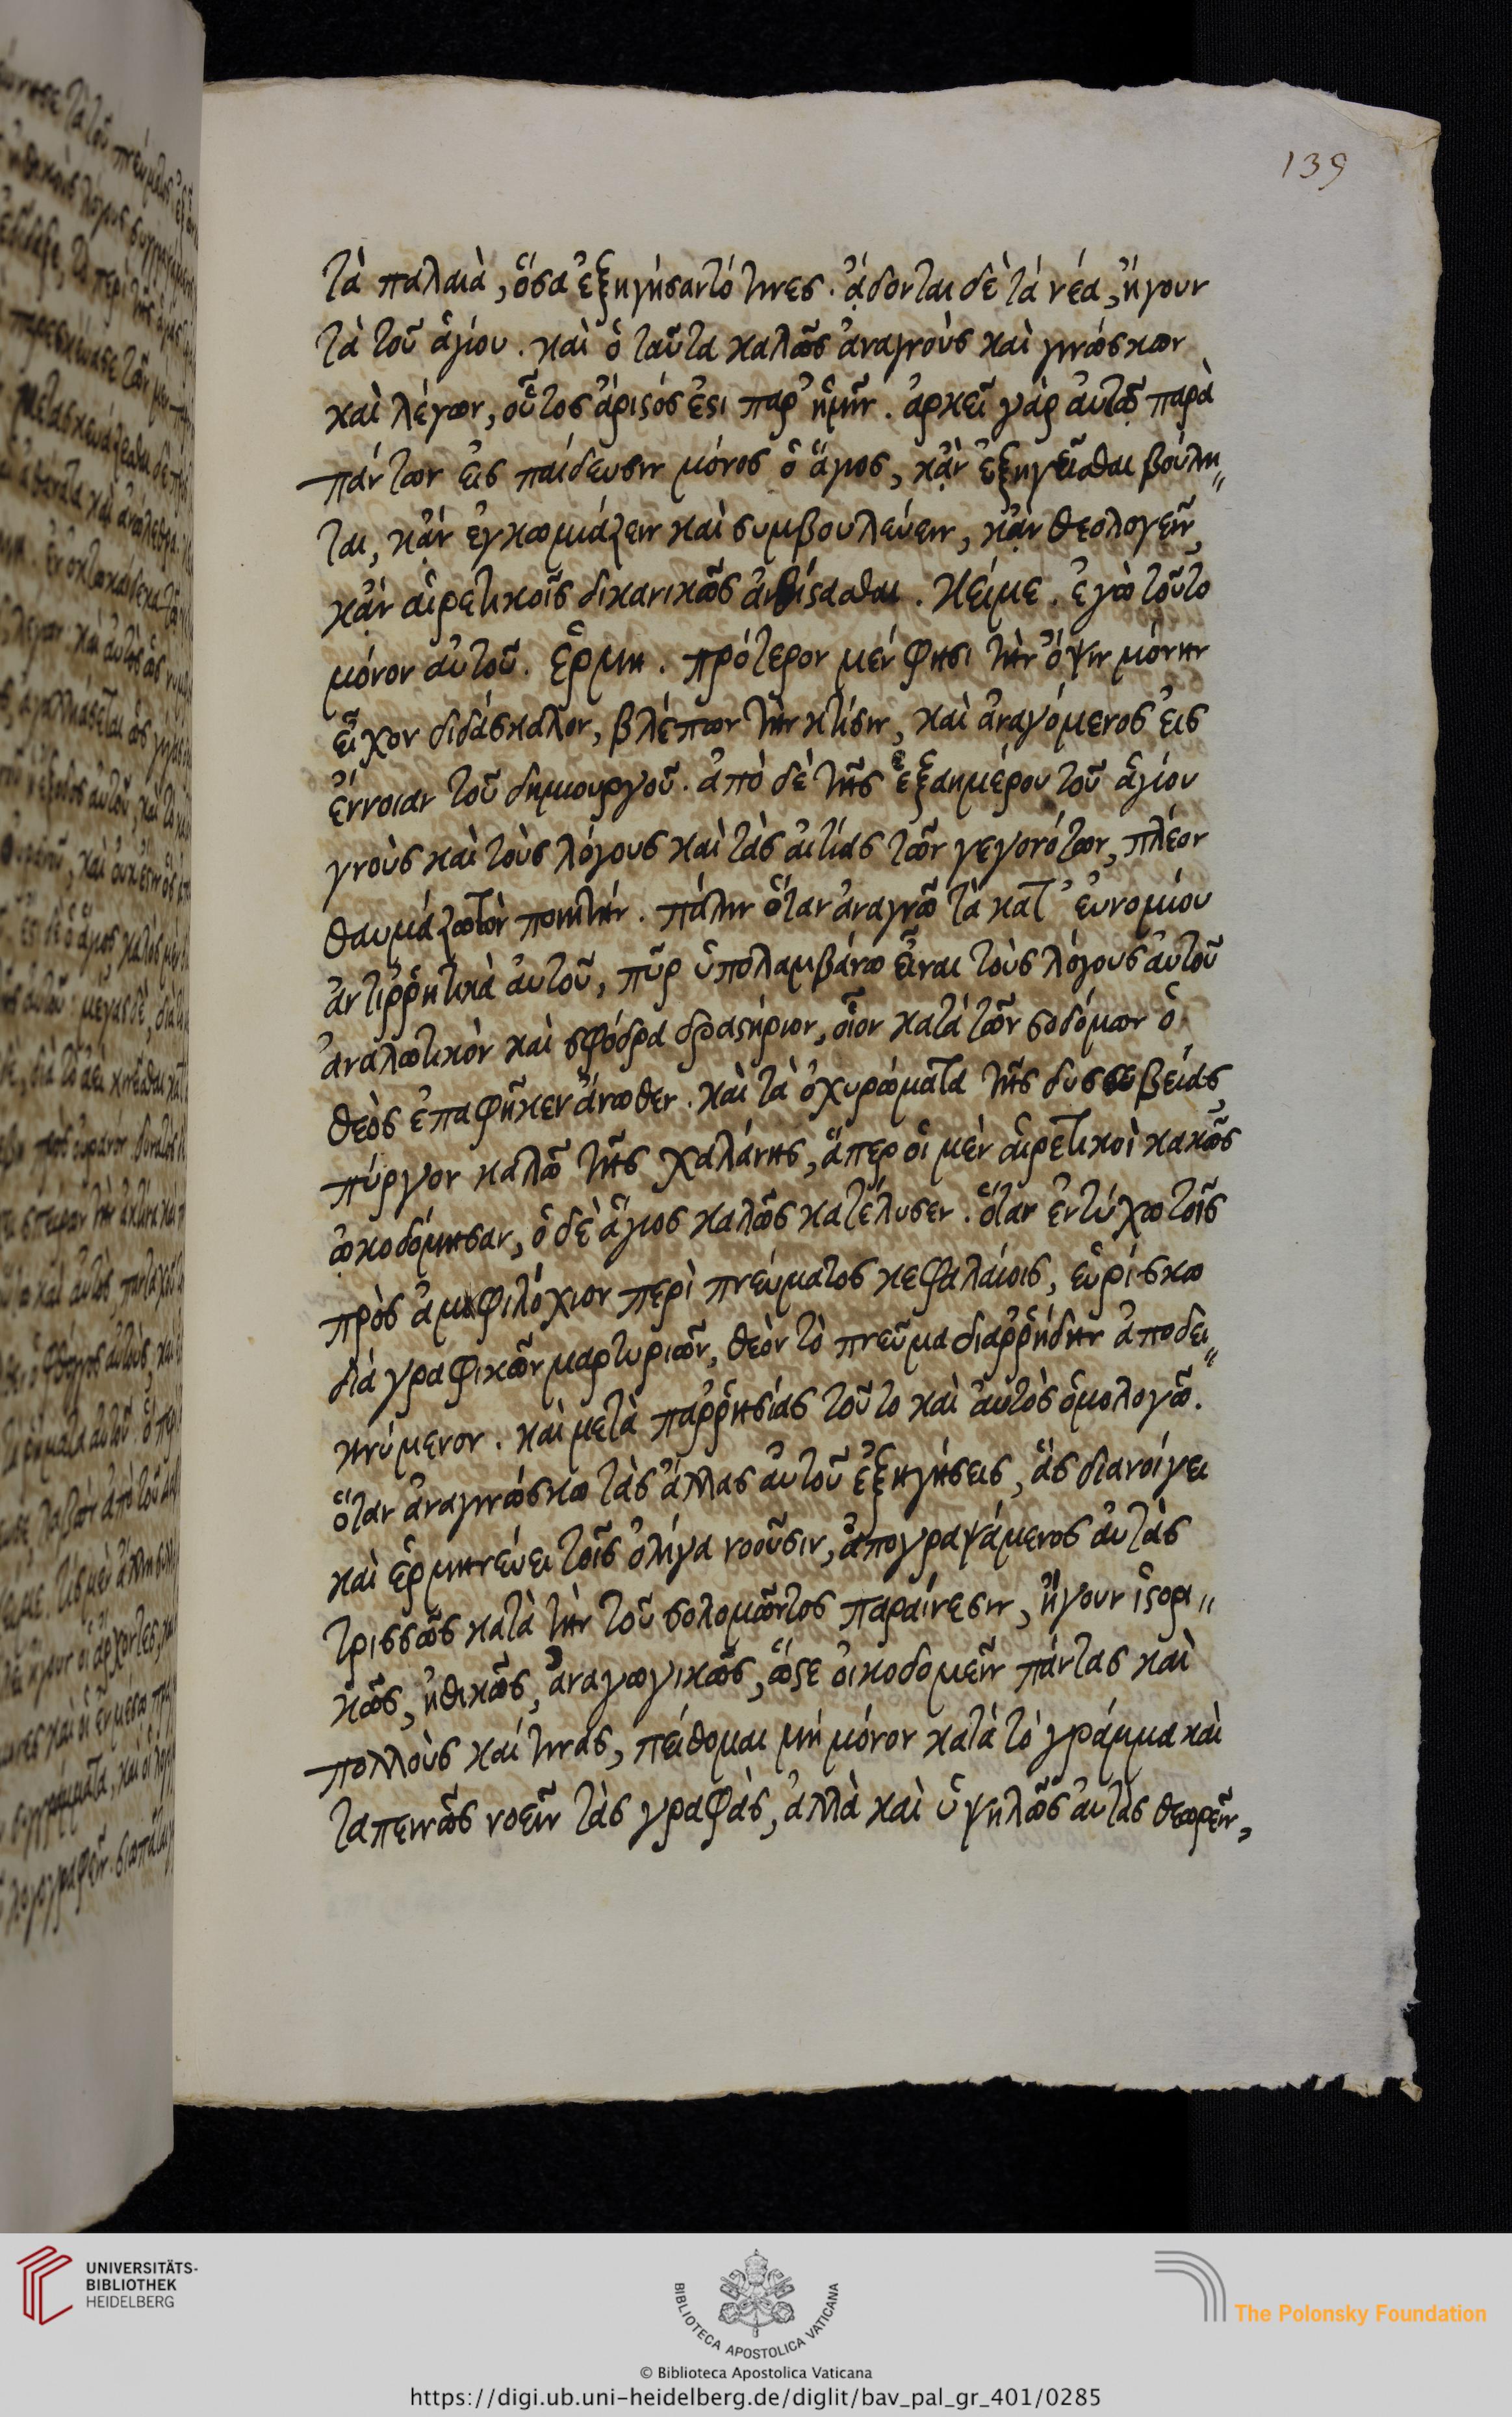 139
τὰ παλαιὰ, ὅσα ἐξηγήσαντό τινες. ἄδονται δὲ τὰ νέα, ἤγουν
τὰ τοῦ ἁγίου. καὶ ὁ ταῦτα καλῶς ἀναγνοὺς καὶ γινώσκων
καὶ λέγων, οὗτος ἄριστός ἐστι παρ' ἡμῖν. ἀρκεῖ γὰρ αὐτῷ παρὰ
πάντων εἰς παίδευσιν μόνος ὁ ἅγιος, κἂν ἐξηγεῖσθαι βούλη„
ται, κἂν ἐγκωμιάζειν καὶ συμβουλεύειν, κἂν θεολογεῖν,
κἂν αἱρετικοῖς δικανικῶς ἀνθίστασθαι. Κείμε. ἐγὼ τοῦτο
μόνον αὐτοῦ. ἑρμη. πρότερον μέν φησι τὴν ὄψιν μόνην
εἶχον διδάσκαλον, βλέπων τὴν κτίσιν, καὶ ἀναγόμενος εἰς
ἔννοιαν τοῦ δημιουργοῦ. ἀπὸ δὲ τῆς ἑξαημέρου τοῦ ἁγίου
γνοὺς καὶ τοὺς λόγους καὶ τὰς αἰτίας τῶν γεγονότων, πλέον
θαυμάζω τὸν ποιητήν. πάλιν ὅταν ἀναγνῶ τὰ κατ' εὐνομίου
ἀντιῤῥητικὰ αὐτοῦ, πῦρ ὑπολαμβάνω εἶναι τοὺς λόγους αὐτοῦ
ἀναλωτικὸν καὶ σφόδρα δραστήριον, οἷον κατὰ τῶν σοδόμων ὁ
θεὸς ἐπαφῆκεν ἄνωθεν. καὶ τὰ ὀχυρώματα τῆς δυσσεβείας,
πύργον καλῶ τῆς χαλάνης, ἅπερ οἱ μὲν αἱρετικοὶ κακῶς
ᾠκοδόμησαν, ὁ δὲ ἅγιος καλῶς κατέλυσεν. ὅταν ἐντύχω τοῖς
πρὸς ἀμφιλόχιον περὶ πνεύματος κεφαλαίοις, εὑρίσκω
διὰ γραφικῶν μαρτυριῶν, θεὸν τὸ πνεῦμα διαῤῥήδην ἀποδει„
κνύμενον. καὶ μετὰ παῤῥησίας τοῦτο καὶ αὐτὸς ὁμολογῶ.
ὅταν ἀναγινώσκω τὰς ἄλλας αὐτοῦ ἐξηγήσεις, ἃς διανοίγει
καὶ ἑρμηνεύει τοῖς ὀλίγα νοοῦσιν, ἀπογραψάμενος αὐτὰς
τρισσῶς κατὰ τὴν τοῦ σολομῶντος παραίνεσιν, ἤγουν ἱστορι„
κῶς, ἠθικῶς, ἀναγωγικῶς, ὥστε οἰκοδομεῖν πάντας καὶ
πολλοὺς καί τινας, πείθομαι μὴ μόνον κατὰ τὸ γράμμα καὶ
ταπεινῶς νοεῖν τὰς γραφὰς, ἀλλὰ καὶ ὑψηλῶς αὐτὰς θεωρεῖν,
UNIVERSITÄTS-
BIBLIOTHEK
HEIDELBERG
BIBLIOTECA APOSTOLICA VATICANA
© Biblioteca Apostolica Vaticana
The Polonsky Foundation
https://digi.ub.uni-heidelberg.de/diglit/bav_pal_gr_401/0285